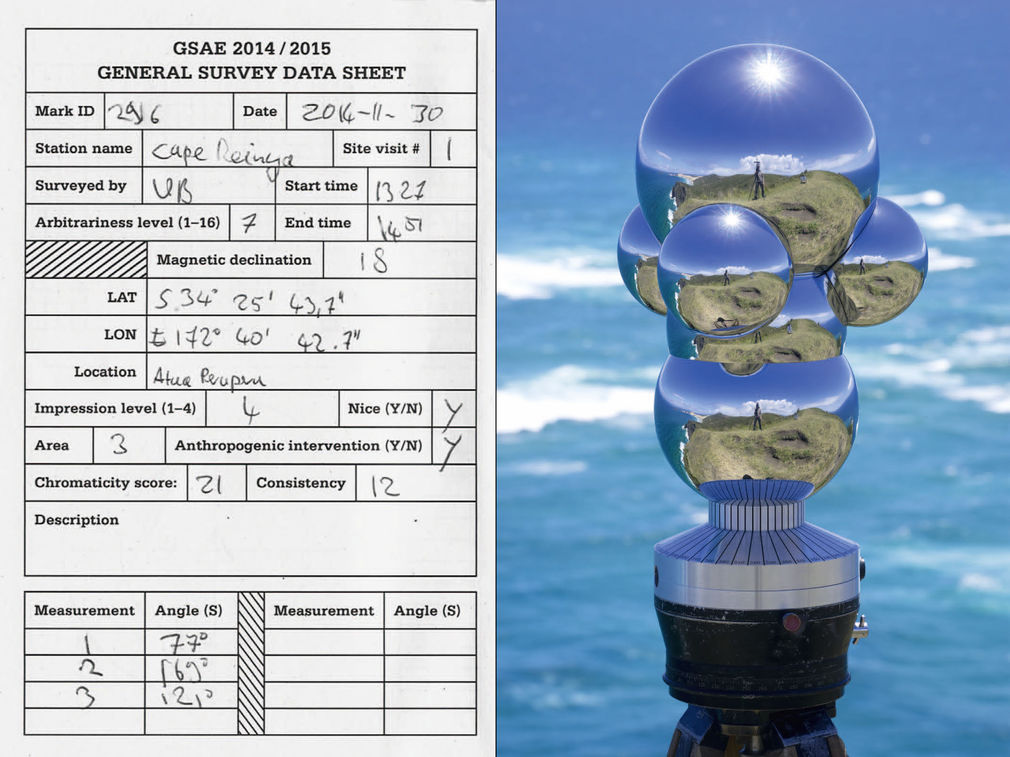 GSAE 2014 / 2015
GENERAL SURVEY DATA SHEET
Mark ID 2916 Date 2014-11-30
Station name Cape Reinga Site visit # 1
Surveyed by UB Start time 1327
Arbitrariness level (1–16) 7 End time 1451
Magnetic declination 18
LAT S 34° 25' 43,7"
LON E 172° 40' 42.7"
Location Atua
Impression level (1–4) 4 Nice (Y/N) Y
Area 3 Anthropogenic intervention (Y/N) Y
Chromaticity score: 21 Consistency 12
Description
Measurement Angle (S) Measurement Angle (S)
1 77°
2 169°
3 121°